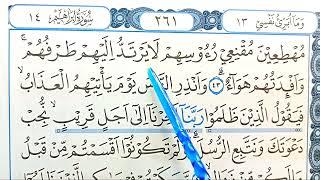 وَمَا أُبَرِّئُ نَفْسِي ١٣ ٢٦١ سُورَةُ إِبْرَاهِيمَ ١٤
مُهْطِعِينَ مُقْنِعِي رُءُوسِهِمْ لَا يَرْتَدُّ إِلَيْهِمْ طَرْفُهُمْ
وَأَفْئِدَتُهُمْ هَوَاءٌ ٤٣ وَأَنْذِرِ النَّاسَ يَوْمَ يَأْتِيهِمُ الْعَذَابُ
فَيَقُولُ الَّذِينَ ظَلَمُوا رَبَّنَا أَخِّرْنَا إِلَى أَجَلٍ قَرِيبٍ نُجِبْ
دَعْوَتَكَ وَنَتَّبِعِ الرُّسُلَ أَوَلَمْ تَكُونُوا أَقْسَمْتُمْ مِنْ قَبْلُ